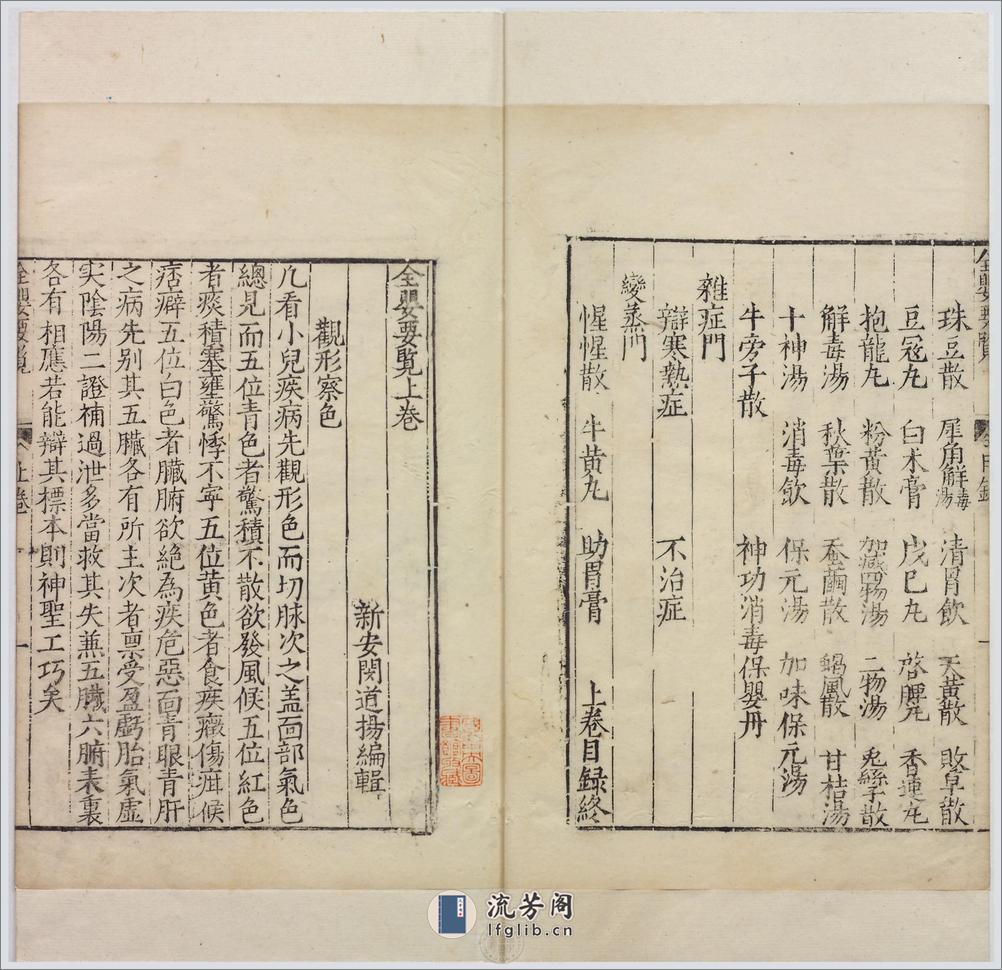 珠豆散 犀角解毒湯 清胃飲 天黃散 敗草散
豆冦丸 白术膏 戊巳丸 啓脾丸 香連丸
抱龍丸 粉黃散 加減四物湯 二物湯 兎絲子散
解毒湯 秋葉散 蚕繭散 蝎風散 甘桔湯
十神湯 消毒飲 保元湯 加味保元湯
牛旁子散 神功消毒保嬰丹
雜症門
辯寒熱症 不治症
變蒸門
惺惺散 牛黃丸 助胃膏 上卷目録終
全嬰要覧上卷
新安閔道揚編輯
觀形察色
凢看小兒疾病先觀形色而切脉次之盖面部氣色
總見而五位青色者驚積不散欲發風候五位紅色
者痰積塞壅驚悸不寜五位黃色者食疾癥傷疳候
痞癖五位白色者臟腑欲絶為疾危惡面青眼青肝
之病先別其五臟各有所主次者禀受盈虧胎氣虛
实陰陽二證補過泄多當救其失兼五臟六腑表裏
各有相應若能辯其標本則神聖工巧矣
全嬰要覧 上卷 一
流芳阁
lfglib.cn